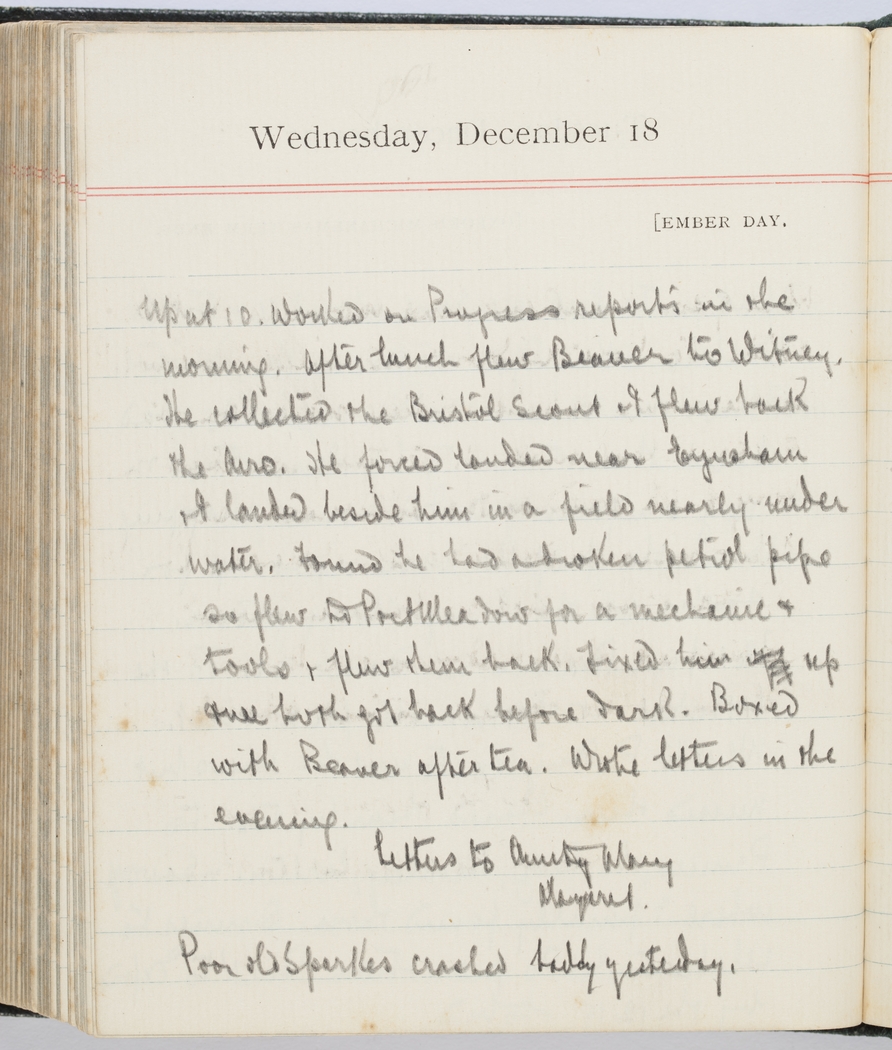 Wednesday, December 18
[EMBER DAY.
Up at 10. Worked on Progress reports in the
morning. After lunch flew Beaver to Witney.
He collected the Bristol Scout & I flew back
the Avro. He forced landed near Eynsham
& I landed beside him in a field nearly under
water. Found he had a broken petrol pipe
so flew to Port Meadow for a mechanic &
tools & flew them back. Fixed him up
& we both got back before dark. Boxed
with Beaver after tea. Wrote letters in the
evening.
Letters to Aunty Mary
Margaret.
Poor old Sparkes crashed badly yesterday.